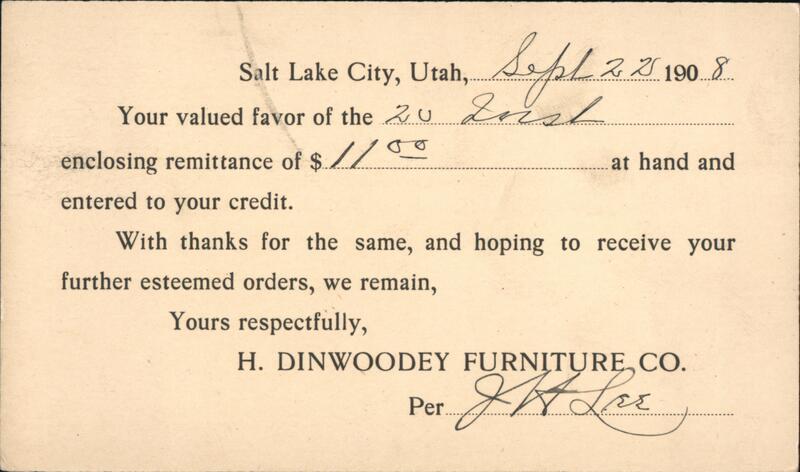 Salt Lake City, Utah, Sept 22 1908
Your valued favor of the 20 Inst
enclosing remittance of $ 11 00 at hand and
entered to your credit.
With thanks for the same, and hoping to receive your
further esteemed orders, we remain,
Yours respectfully,
H. DINWOODEY FURNITURE CO.
Per J H Lee